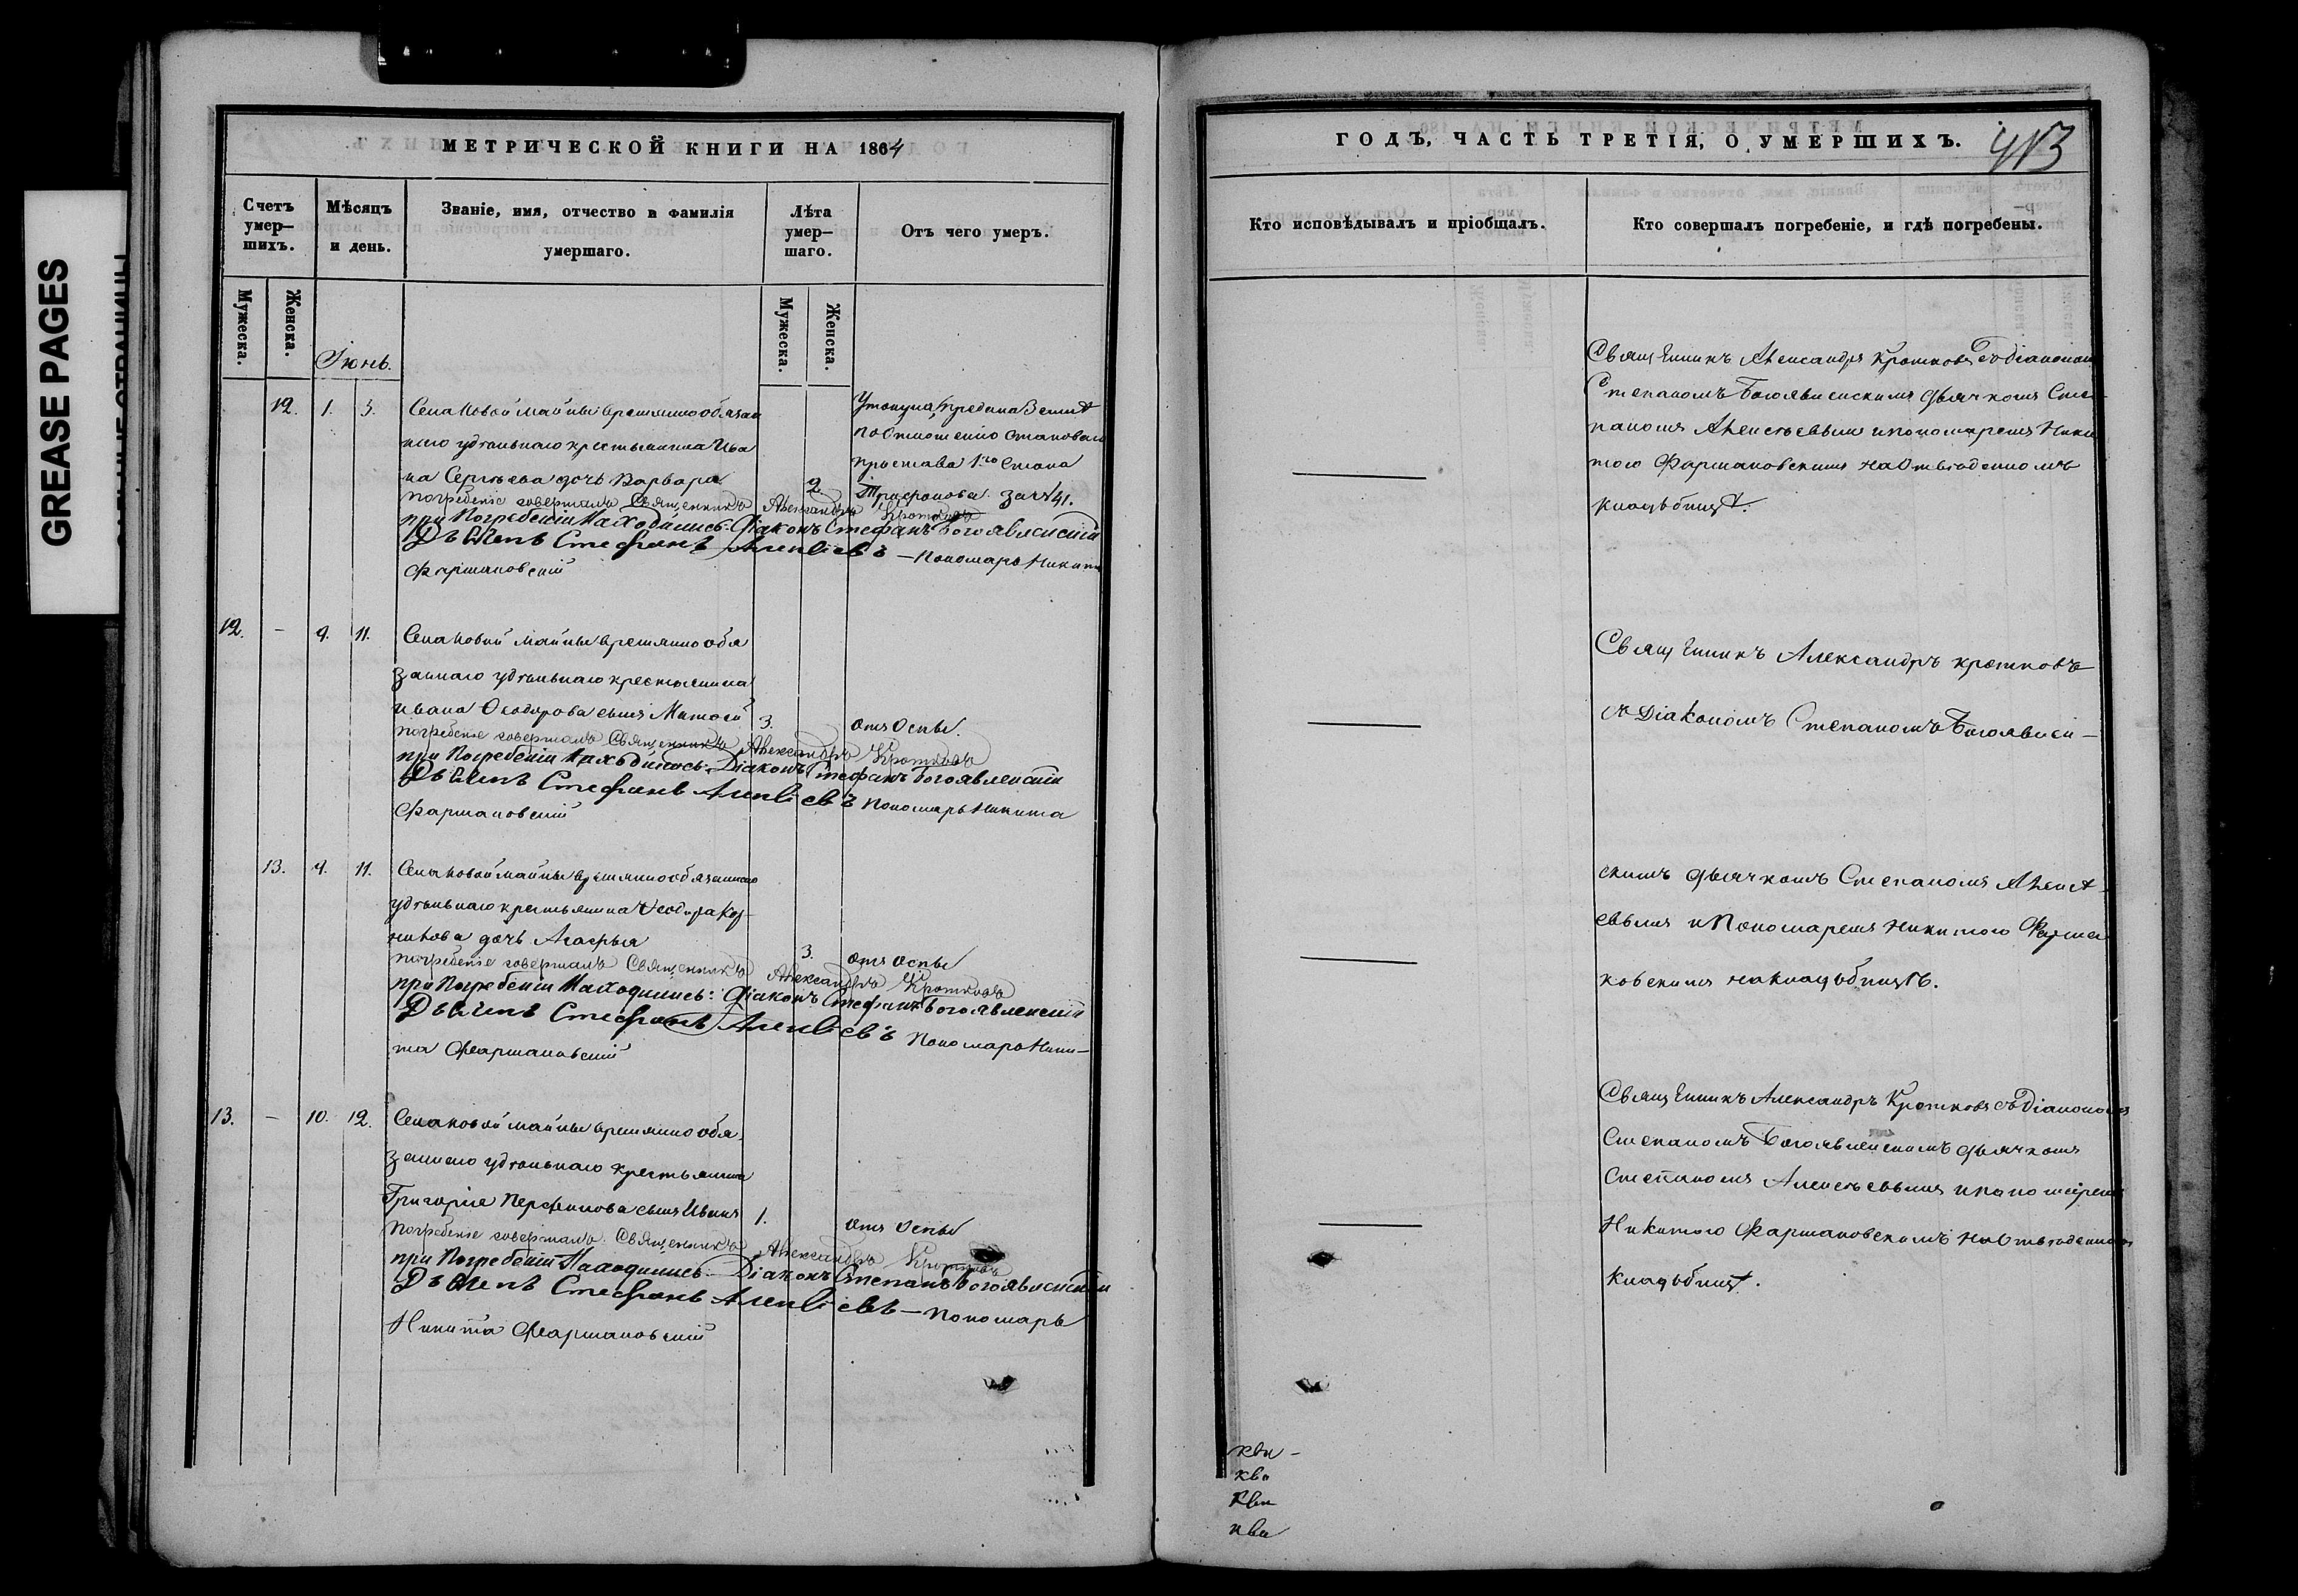 GREASE PAGES
МЕТРИЧЕСКОЙ КНИГИ НА 1864
Счетъ умер–шихъ.
Мѣсяцъ и день.
Званіе, имя, отчество и фамилія умершаго.
Лѣта умер–шаго.
Отъ чего умеръ.
Мужеска.
Женска.
Іюнь.
Мужеска.
Женска.
12. 1. 3.
Села Новой майны временно обязан
наго удѣльнаго крестьянина Ива
на Сергѣева дочь Варвара
2.
Утонула предана земли
по отношенію Становаго
пристава 1го Стана
за № 41.
погребеніе совершалъ Священникъ Александръ Кротковъ
при Погребеніи Находились: Діаконъ Стефанъ Богоявленскій
Дьячекъ Стефанъ Алексѣевъ – Пономарь Никита
Фармаковскій
12. – 9. 11.
Села Новой майны временно обя
заннаго удѣльнаго крестьянина
Ивана Ѳеодорова сынъ Матѳей
3.
отъ Оспы.
погребеніе совершалъ Священникъ Александръ Кротковъ
при Погребеніи Находились: Діаконъ Стефанъ Богоявленскій
Дьячекъ Стефанъ Алексѣевъ Пономарь Никита
Фармаковскій
13. 9. 11.
Села Новой майны временно обязаннаго
удѣльнаго крестьянина Ѳеодора
дочь Агафья
3.
отъ оспы
погребеніе совершалъ Священникъ Александръ Кротковъ
при Погребеніи Находились: Діаконъ Стефанъ Богоявленскій
Дьячекъ Стефанъ Алексѣевъ Пономарь Ники–
та Фармаковскій
13. – 10. 12.
Села Новой майны временно обя
заннаго удѣльнаго крестьянина
Григорія Перфилова сынъ Иванъ
1.
отъ оспы
Погребеніе совершалъ Священникъ Александръ Кротковъ
при Погребеніи Находились – Діаконъ Степанъ Богоявленскій
Дьячекъ Стефанъ Алексѣевъ – Пономарь
Никита Фармаковскій
ГОДЪ, ЧАСТЬ ТРЕТІЯ, О УМЕРШИХЪ.
413
Кто исповѣдывалъ и пріобщалъ.
Кто совершалъ погребеніе, и гдѣ погребены.
Священникъ Александръ Кротковъ съ діакономъ
Степаномъ Богоявленскимъ дьячкомъ Сте
паномъ Алексѣевымъ и пономаремъ Ники
тою Фармаковскимъ на Отведенномъ
кладбищѣ.
Священникъ Александръ Кротковъ
съ Діакономъ Степаномъ Богоявлен–
скимъ дьячкомъ Степаномъ Алексѣ–
евымъ и Пономаремъ Никитою Фарма
ковскимъ на кладбищѣ.
Священникъ Александръ Кротковъ съ Діакономъ
Степаномъ Богоявленскимъ дьячкомъ
Степаномъ Алексѣевымъ и пономаремъ
Никитою Фармаковскимъ на Отведенномъ
кладбищѣ.